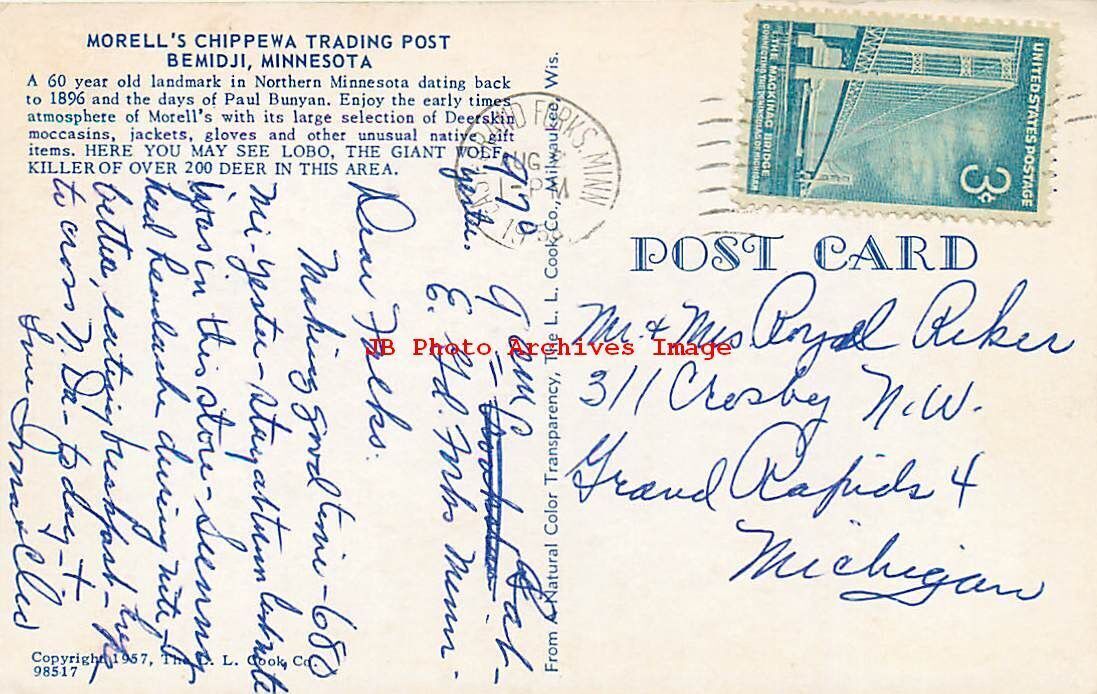 MORELL'S CHIPPEWA TRADING POST
BEMIDJI, MINNESOTA
A 60 year old landmark in Northern Minnesota dating back
to 1896 and the days of Paul Bunyan. Enjoy the early times
atmosphere of Morell's with its large selection of Deerskin
moccasins, jackets, gloves and other unusual native gift
items. HERE YOU MAY SEE LOBO, THE GIANT WOLF,
KILLER OF OVER 200 DEER IN THIS AREA.
7 am - Sat -
E. Gd. Forks Minn.
Dear Folks.
Making good time - 680
mi - yester - stay at turn last nite
was in this store -
had headache during nite -
better, eating breakfast -
to cross N. Da - today - +
Love Irma + Cleo
Copyright 1957, The L. L. Cook Co.
98517
From A Natural Color Transparency, The L. L. Cook Co., Milwaukee, Wis.
EAST GRAND FORKS, MINN
AUG
1 - PM
UNITED STATES POSTAGE
THE MACKINAC BRIDGE
CONNECTING THE PENINSULAS OF MICHIGAN
3¢
POST CARD
Mr. & Mrs Royal Riker
311 Crosby N.W.
Grand Rapids 4
Michigan
JB Photo Archives Image